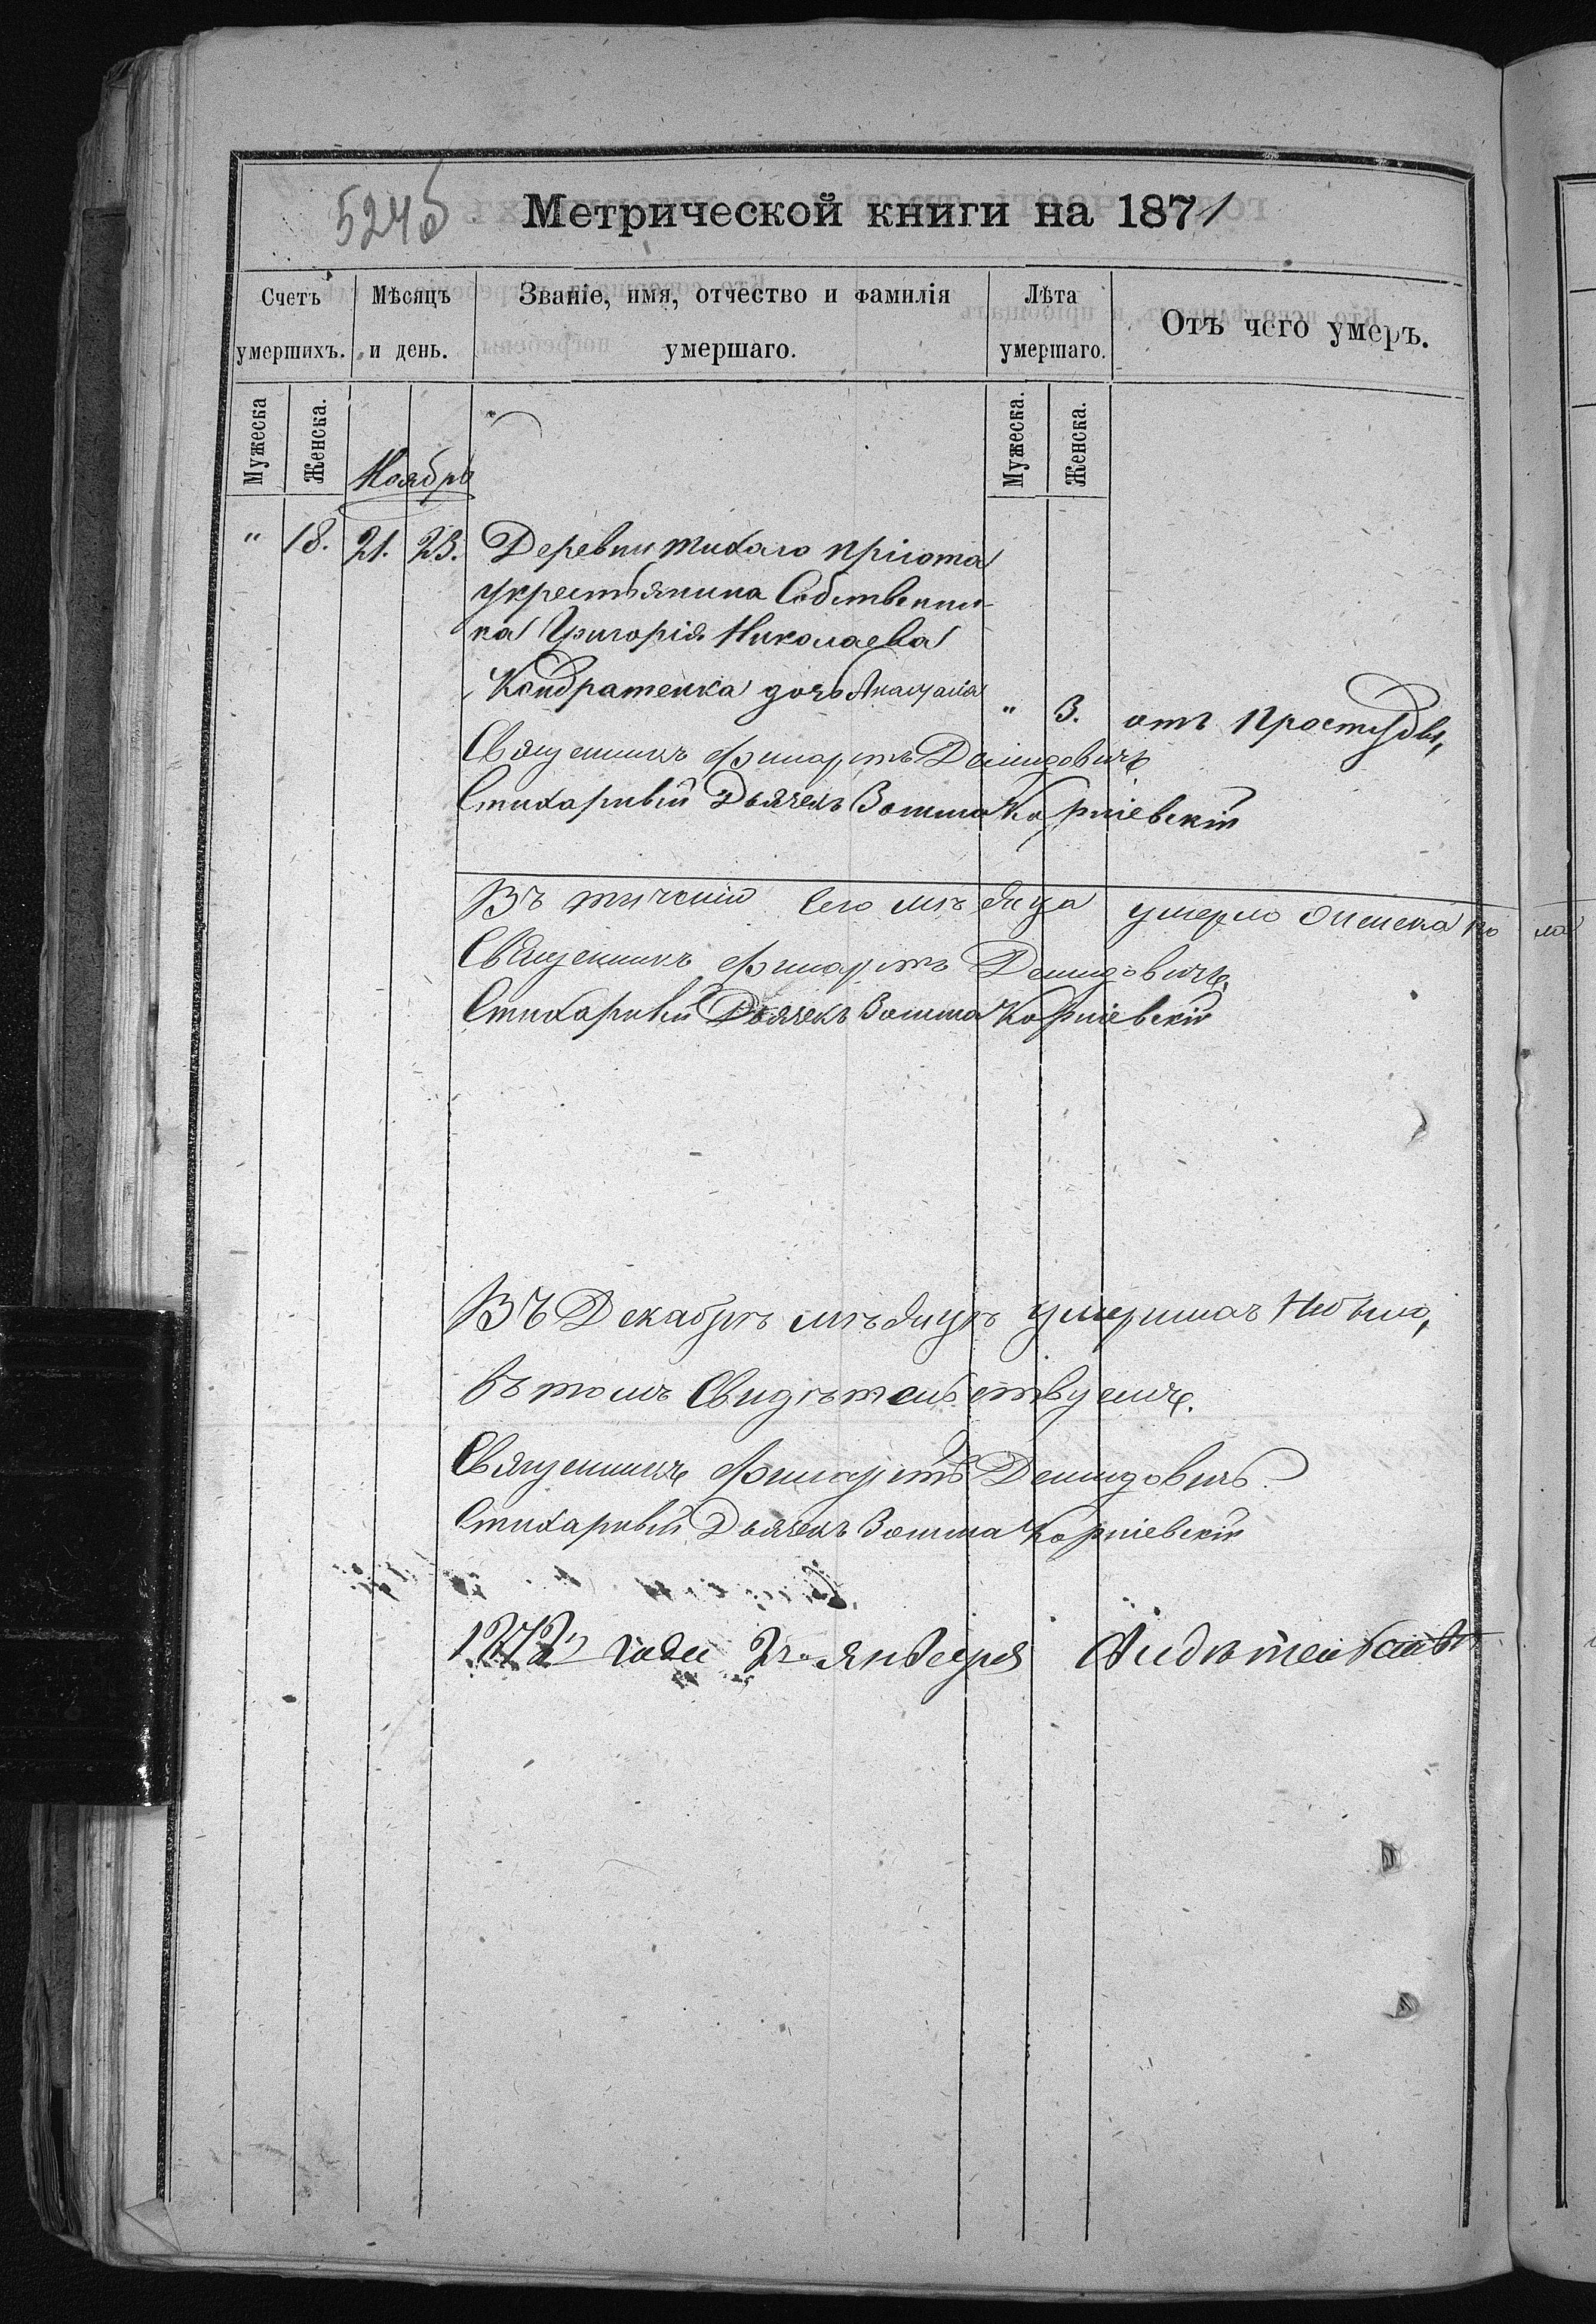 524б
Метрической книги на 1871
Счетъ умершихъ.
Мѣсяцъ и день.
Званіе, имя, отчество и фамилія умершаго.
Лѣта умершаго.
Отъ чего умеръ.
Мужеска
Женска.
Мужеска.
Женска.
Ноябрь
" 18. 21. 23. Деревни Тихаго пріюта
укрестьянина Собственни-
ка Григорія Николаева
Кондратенка дочь " 3. отъ Простуды,
Священникъ Филаретъ Демидовичъ
Стихарный Дьячекъ Зосима Корніевскій
Въ теченіи сего мѣсяца умерло женска пола
Священникъ Филаретъ Демидовичъ
Стихарный Дьячекъ Зосима Корніевскій
Въ Декабрѣ мѣсяцѣ умершихъ небыло,
въ томъ Свидѣтельствуемъ.
Священникъ Филаретъ Демидовичъ
Стихарный Дьячекъ Зосима Корніевскій
1872 года января